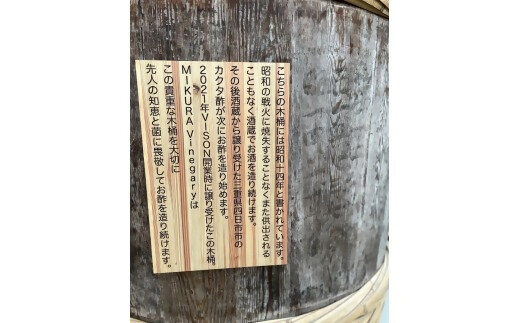 こちらの木桶には昭和十四年と書かれています。
昭和の戦火に焼失することなくまた供出される
こともなく酒蔵でお酒を造り続けます。
その後酒蔵から譲り受けた三重県四日市市の
カクタ酢が次にお酢を造り始めます。
2021年VISON開業時に譲り受けたこの木桶。
MIKURA Vinegaryは
この貴重な木桶を大切に
先人の知恵と菌に畏敬してお酢を造り続けます。